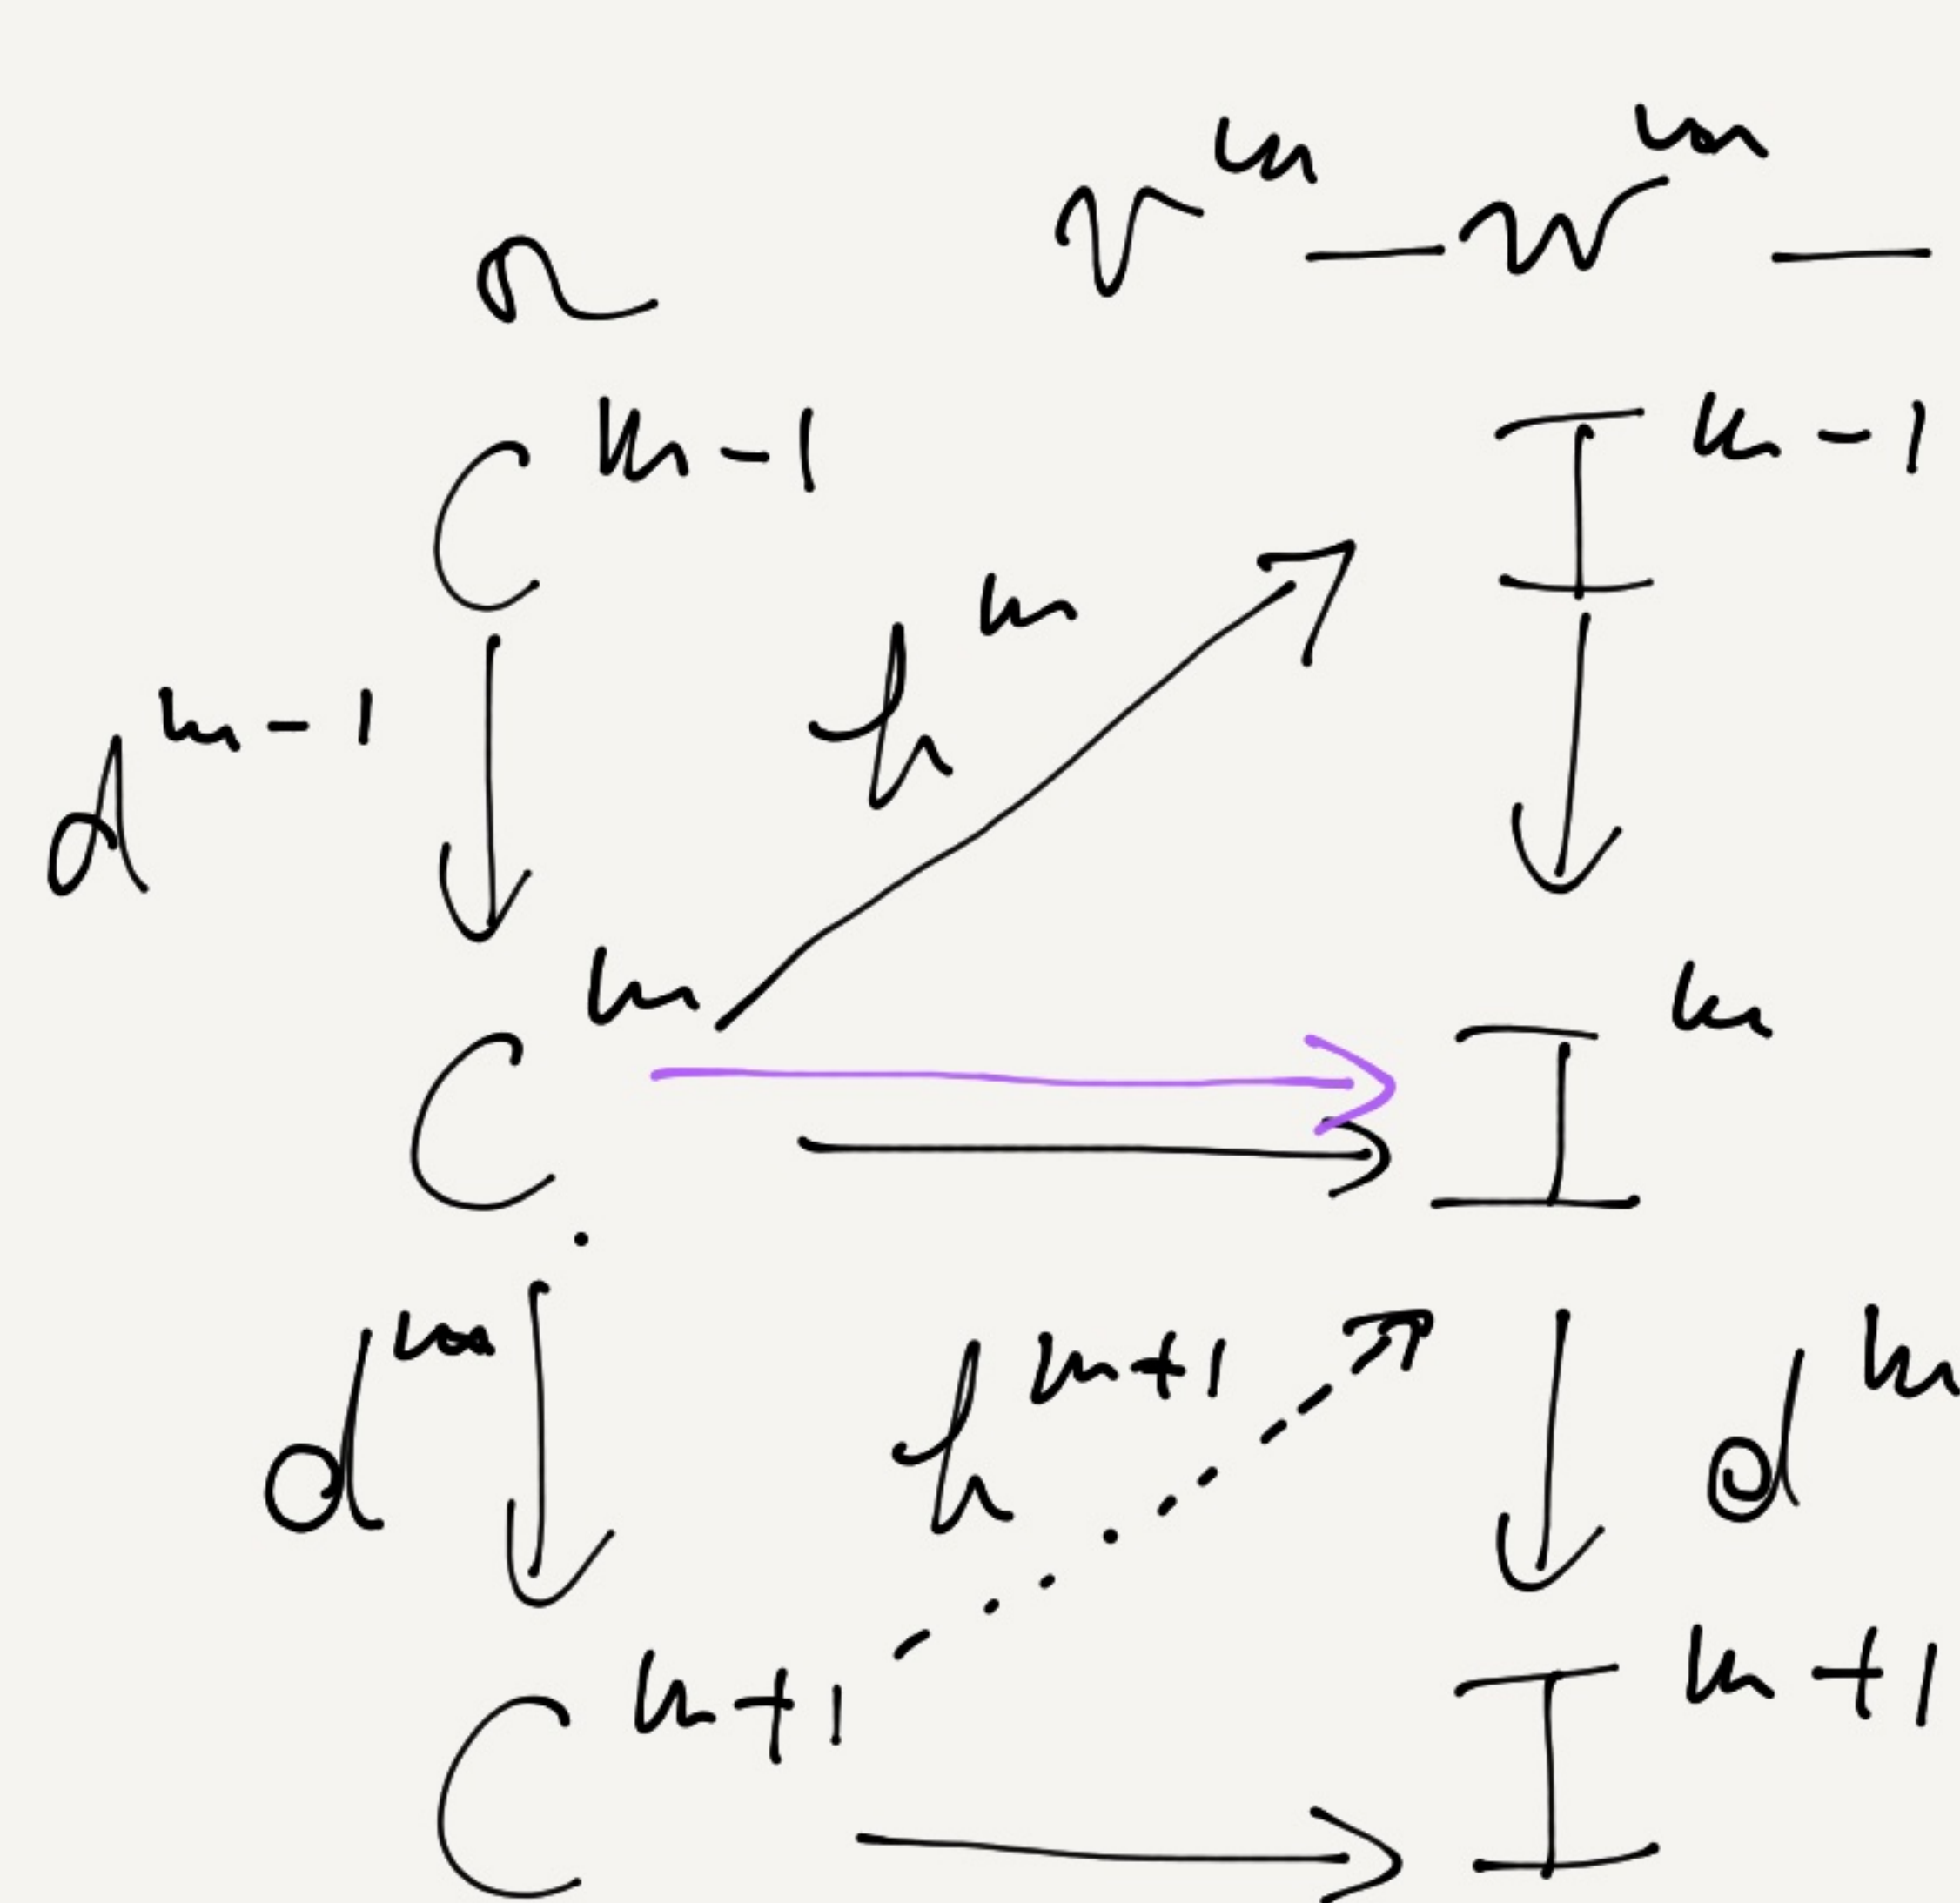 v^m — w^m —
C^{m-1} I^{m-1}
h^m
d^{m-1}
C^m I^m
d^m h^{m+1} d^m
C^{m+1} I^{m+1}